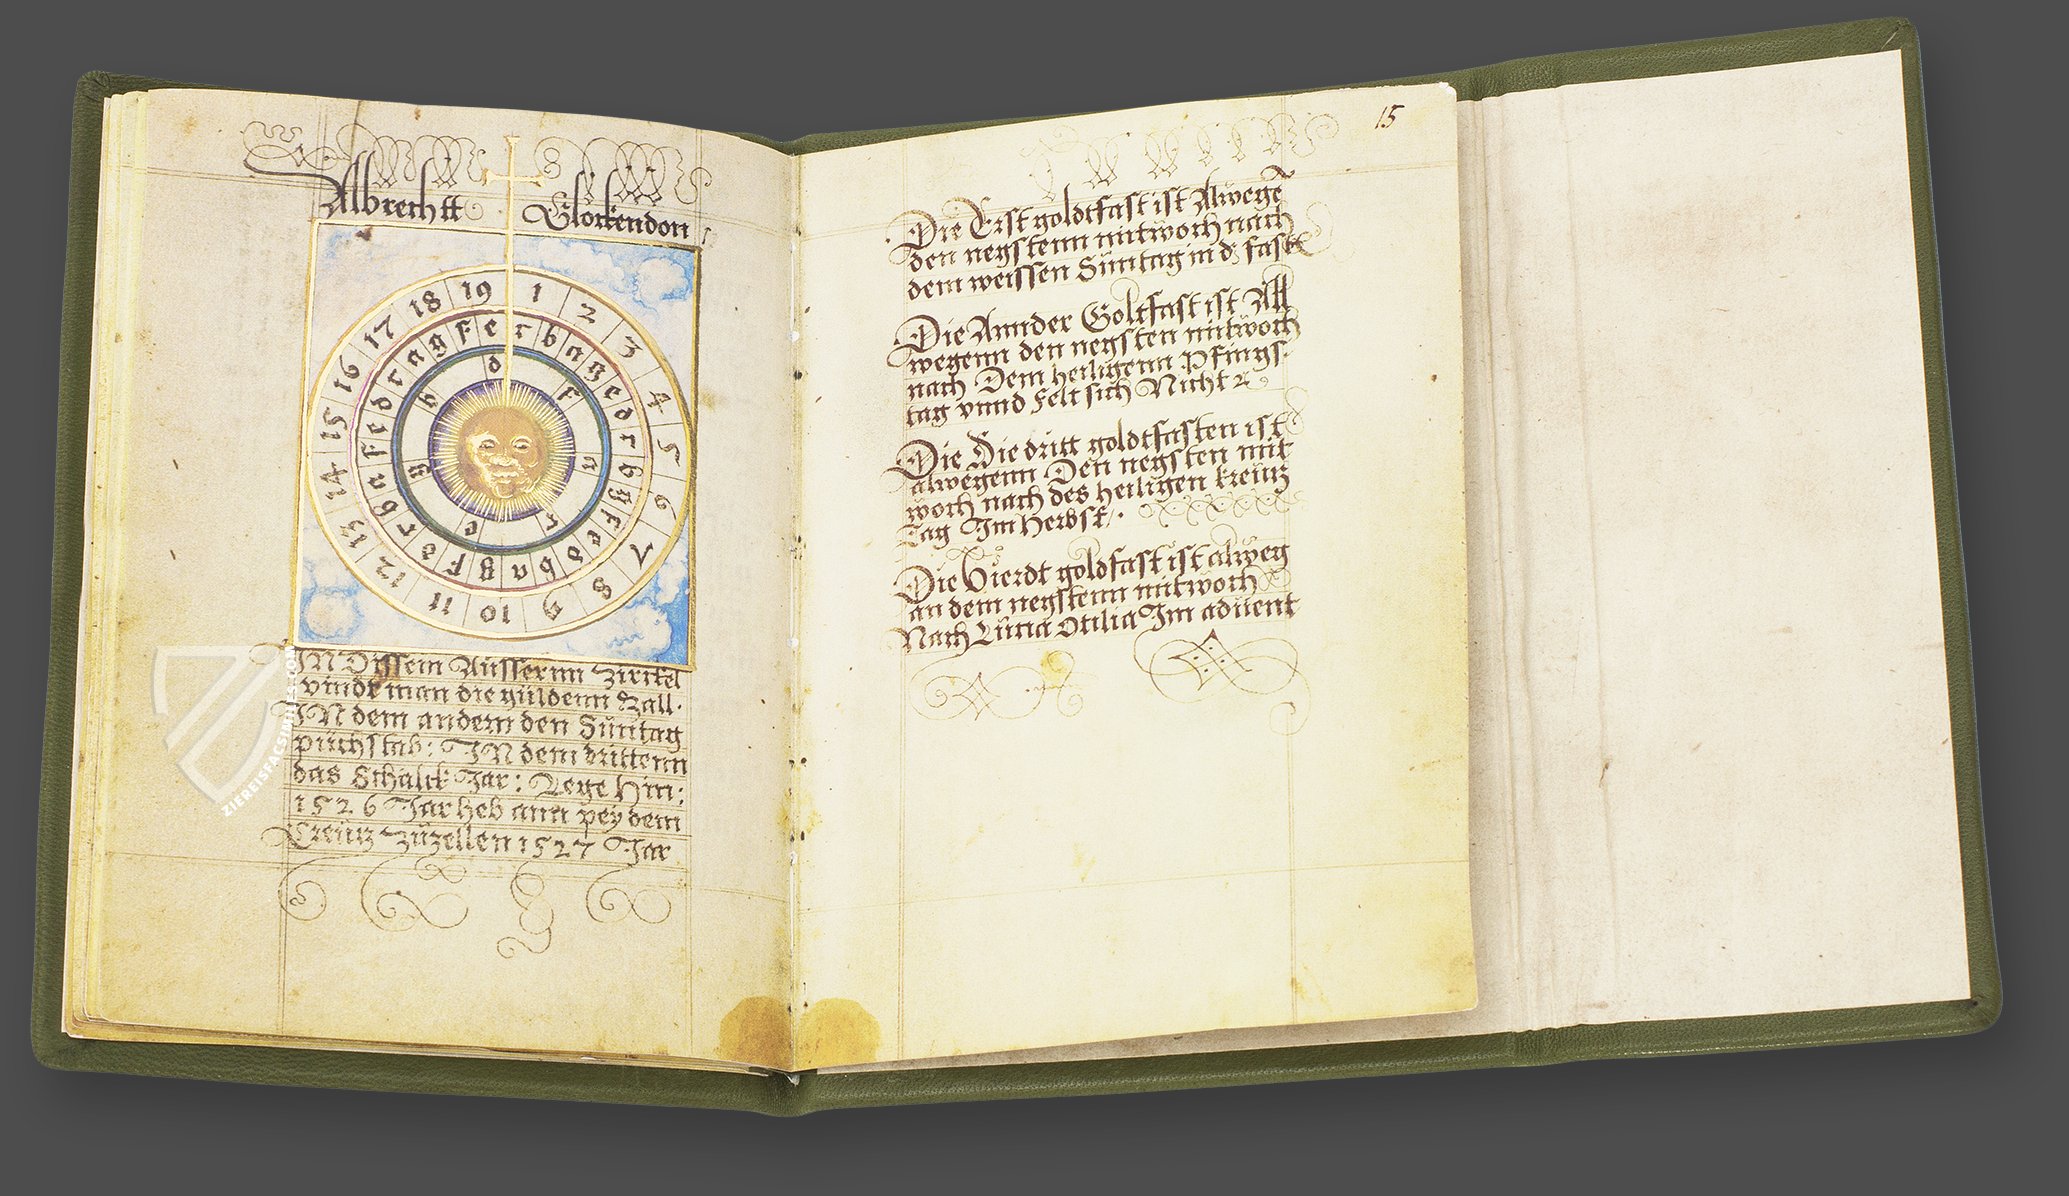 Albrechtt Glockendon
19 1 2 3 4 5 6 7 8 9 10 11 12 13 14 15 16 17 18
e r b a g e d r b g f e d b a g f e r b a f e d r a g f
d f a r e g b
IN Dissem Aüssernn Zirckel
vindt man die güldenn Zall.
IN dem andern den Sūntag
püchstab: IN dem drittenn
das Schalck Jar: Lege Hin:
1526 Jar heb ann pey dem
Creütz Zūzellen 1527 Jar
ZIEREISFACSIMILES.COM
15
Die Erst goldtfast ist Alwegē
den negstenn mitwoch nach
dem weissen Sūntag in d fastē
Die Annder Goltfast ist All
wegenn den negsten mitwoch
nach Dem heiligenn Pfings.
tag vnnd Felt sich Nicht
Die Die dritt goldtfasten ist
alwegenn Den negsten mit
woch nach des heiligen kreütz
Tag Im Herbst.
Die Vierdt goldfast ist alweg
an dem negstenn mitwoch
Nach Lūcia Otilia Im aduent